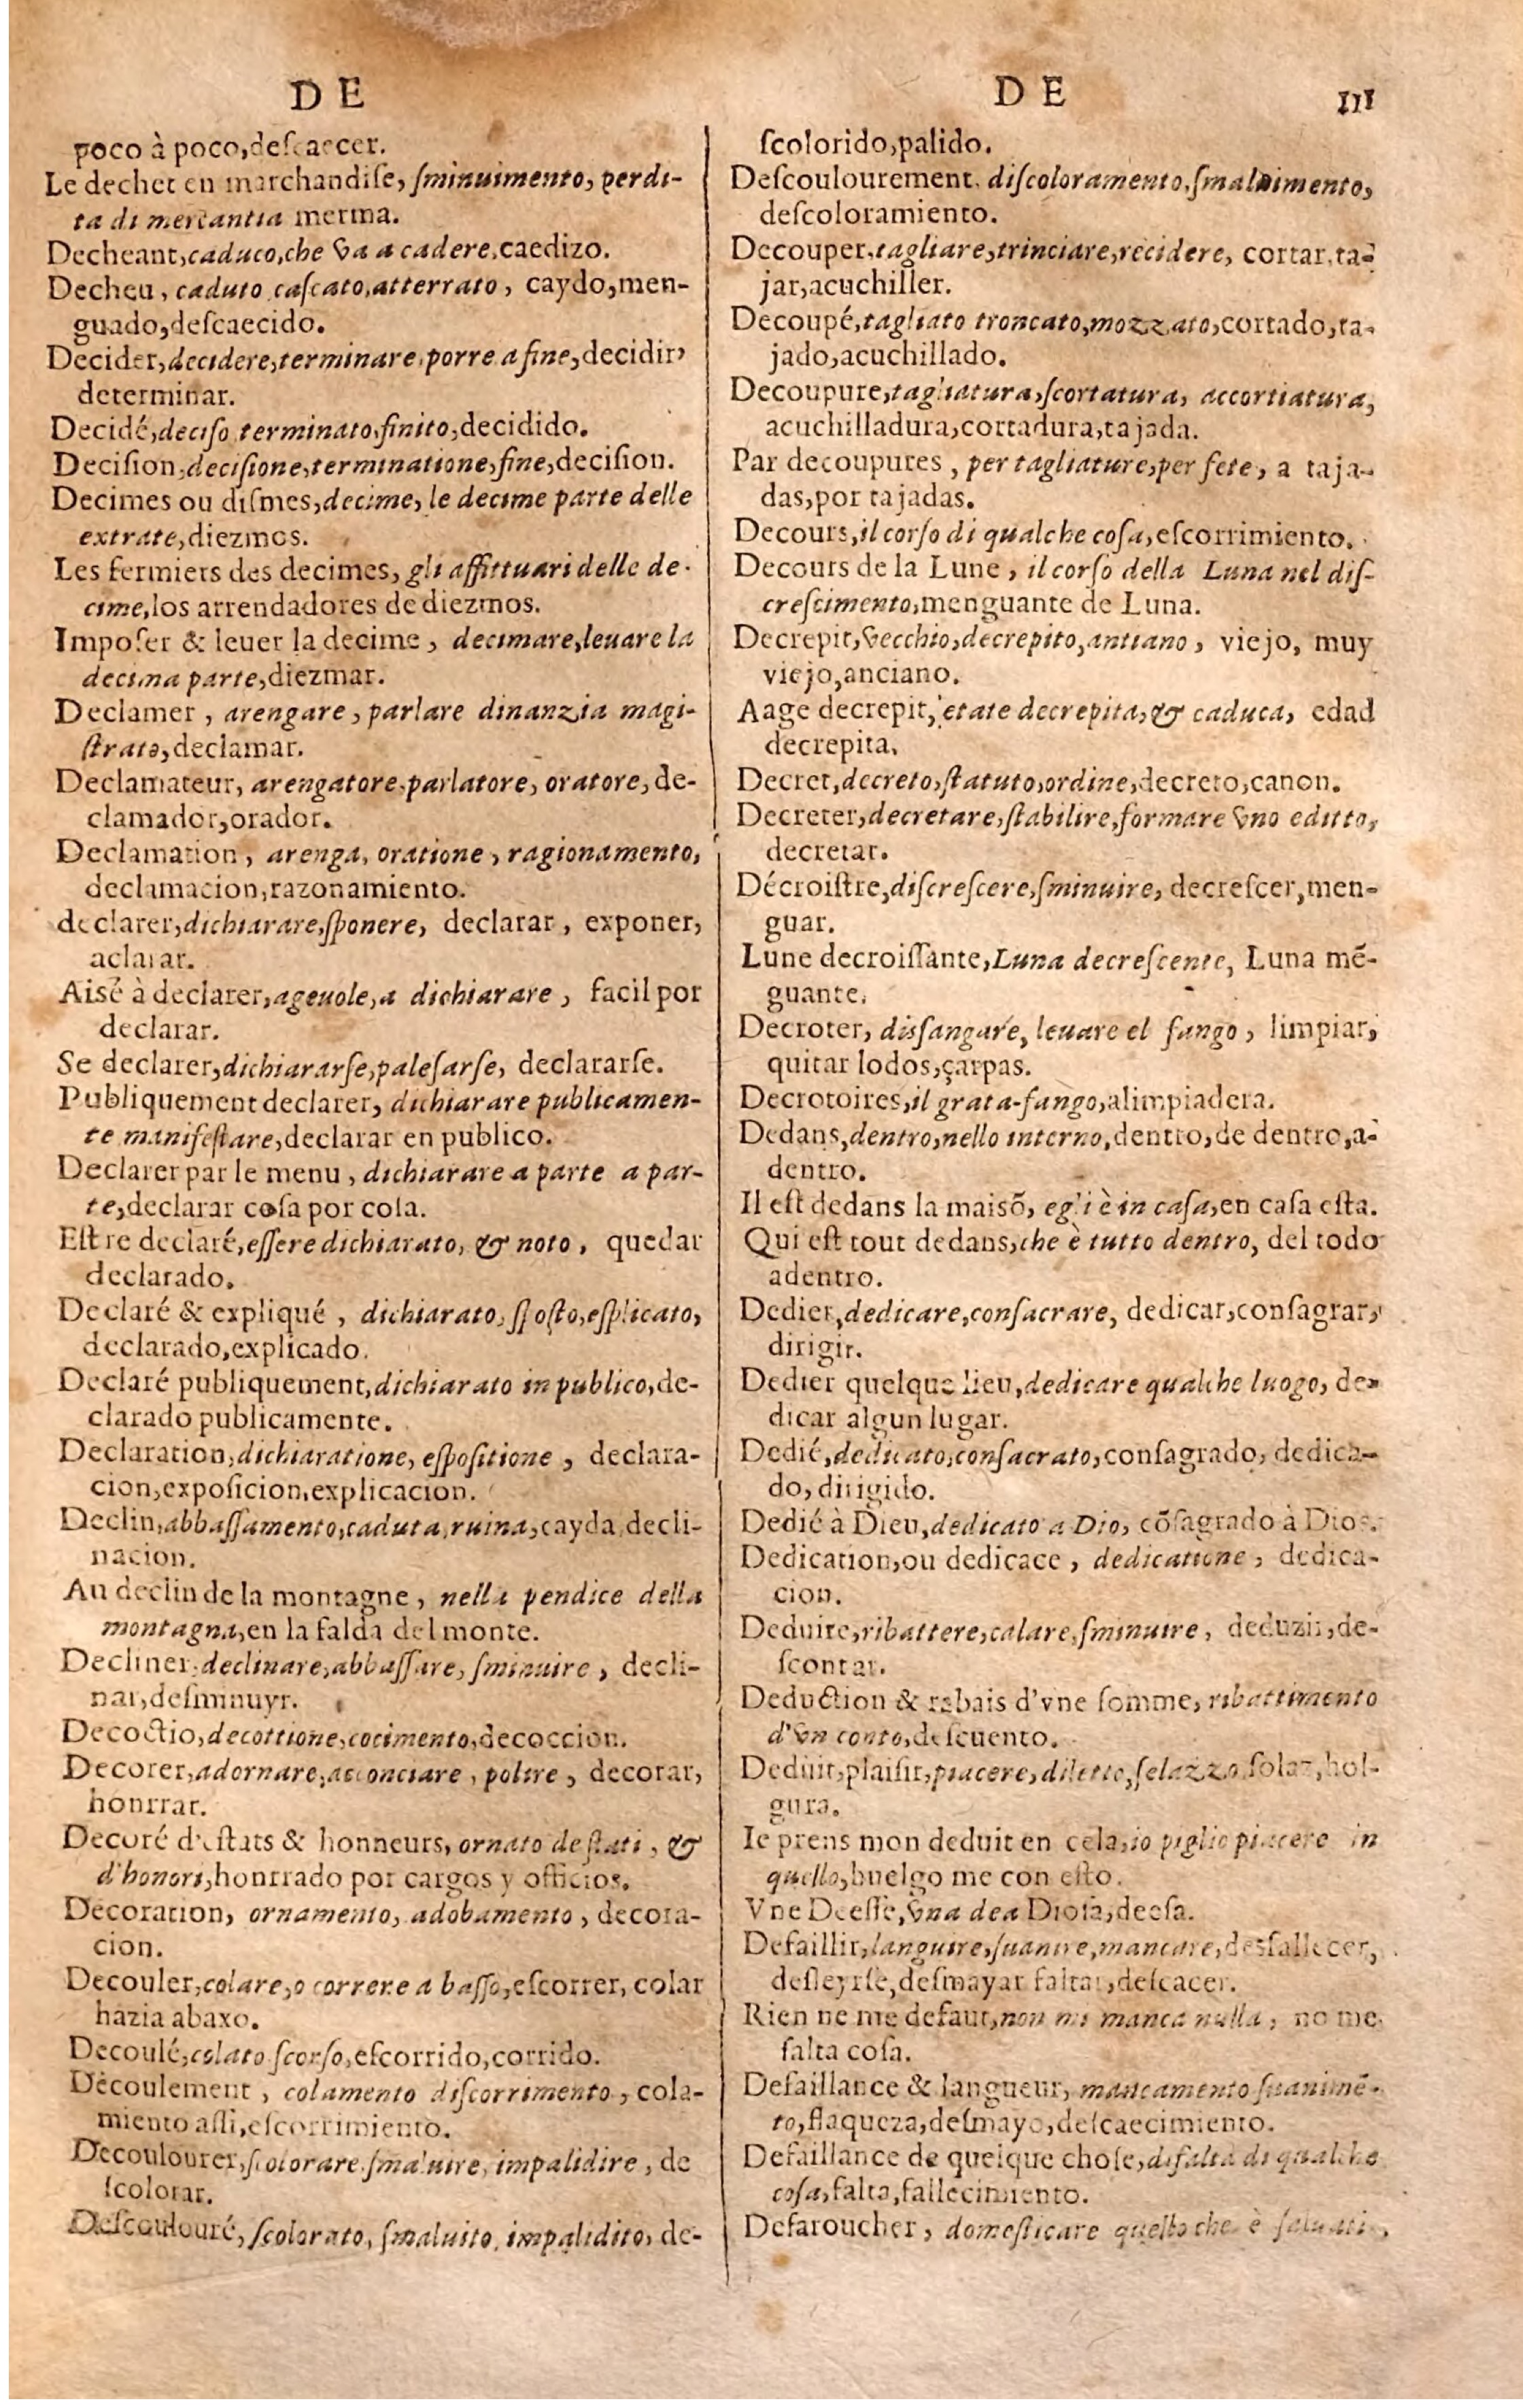 D E
poco à poco,descaecer.
Le dechet en marchandise, sminuimento, perdi-
ta di mercantia merma.
Decheant,caduco,che va a cadere,caedizo.
Decheu, caduto cascato,atterrato, caydo,men-
guado,descaecido.
Decider,decidere,terminare,porre a fine,decidir,
determinar.
Decidé,deciso terminato,finito,decidido.
Decision,decisione,terminatione,fine,decision.
Decimes ou dismes,decime, le decime parte delle
extrate,diezmos.
Les fermiers des decimes, gli affittuari delle de-
cime,los arrendadores de diezmos.
Imposer & leuer la decime, decimare,leuare la
decima parte,diezmar.
Declamer, arengare, parlare dinanzia magi-
strato,declamar.
Declamateur, arengatore,parlatore, oratore, de-
clamador,orador.
Declamation, arenga, oratione, ragionamento,
declamacion,razonamiento.
declarer,dichiarare,sponere, declarar, exponer,
aclarar.
Aisé à declarer,ageuole,a dichiarare, facil por
declarar.
Se declarer,dichiararse,palesarse, declararse.
Publiquement declarer, dichiarare publicamen-
te manifestare,declarar en publico.
Declarer par le menu, dichiarare a parte a par-
te,declarar cosa por cosa.
Estre declaré,essere dichiarato, & noto, quedar
declarado.
Declaré & expliqué, dichiarato, sposto,esplicato,
declarado,explicado.
Declaré publiquement,dichiarato in publico,de-
clarado publicamente.
Declaration,dichiaratione, espositione, declara-
cion,exposicion,explicacion.
Declin,abbassamento,caduta,ruina,cayda,decli-
nacion.
Au declin de la montagne, nella pendice della
montagna,en la falda del monte.
Decliner,declinare,abbassare, sminuire, decli-
nar,desminuyr.
Decoctio,decottione,cocimento,decoccion.
Decorer,adornare,acconciare, polire, decorar,
honrrar.
Decoré d'estats & honneurs, ornato de stati, &
d'honori,honrrado por cargos y officios.
Decoration, ornamento, adobamento, decora-
cion.
Decouler,colare,o correre a basso,escorrer, colar
hazia abaxo.
Decoulé,colato scorso,escorrido,corrido.
Decoulement, colamento discorrimento, cola-
miento assi,escorrimiento.
Decoulourer,scolorare smaluire, impalidire, de
scolorar.
Descoulouré, scolorato, smaluito, impalidito, de-
D E 111
scolorido,palido.
Descoulourement, discoloramento,smaluimento,
descoloramiento.
Decouper,tagliare,trinciare,recidere, cortar,ta-
jar,acuchiller.
Decoupé,tagliato troncato,mozzato,cortado,ta-
jado,acuchillado.
Decoupure,tagliatura,scortatura, accortiatura,
acuchilladura,cortadura,tajada.
Par decoupures, per tagliature,per fete, a taja-
das,por tajadas.
Decours,il corso di qualche cosa,escorrimiento.
Decours de la Lune, il corso della Luna nel dis-
crescimento,menguante de Luna.
Decrepit,vecchio,decrepito,antiano, viejo, muy
viejo,anciano.
Aage decrepit, etate decrepita, & caduca, edad
decrepita.
Decret,decreto,statuto,ordine,decreto,canon.
Decreter,decretare,stabilire,formare vno editto,
decretar.
Décroistre,discrescere,sminuire, decrescer,men-
guar.
Lune decroissante,Luna decrescente, Luna mē-
guante.
Decroter, disfangare, leuare el fango, limpiar,
quitar lodos,çarpas.
Decrotoires,il grata-fango,alimpiadera.
Dedans,dentro,nello interno,dentro,de dentro,a-
dentro.
Il est dedans la maisō, egli è in casa,en casa esta.
Qui est tout dedans,che è tutto dentro, del todo
adentro.
Dedier,dedicare,consacrare, dedicar,consagrar,
dirigir.
Dedier quelque lieu,dedicare qualche luogo, de-
dicar algun lugar.
Dedié,dedicato,consacrato,consagrado, dedica-
do,dirigido.
Dedié à Dieu,dedicato a Dio, cōsagrado à Dios.
Dedication,ou dedicace, dedicatione, dedica-
cion.
Deduire,ribattere,calare,sminuire, deduzir,de-
scontar.
Deduction & rabais d'vne somme, ribattimento
d'vn conto,descuento.
Deduit,plaisir,piacere, diletto,selazzo solaz,hol-
gura.
Ie prens mon deduit en cela,io piglio piacere in
quello,huelgo me con esto.
Vne Deesse,vna dea Diosa,deesa.
Defaillir,languire,suanire,mancare,desfallecer,
desleyrse,desmayar faltar,descacer.
Rien ne me defaut,non mi manca nulla, no me
falta cosa.
Defaillance & langueur, mancamento suanimē-
to,flaqueza,desmayo,descaecimiento.
Defaillance de quelque chose,difalta di qualche
cosa,falta,fallecimiento.
Defaroucher, domesticare quello che è saluati,